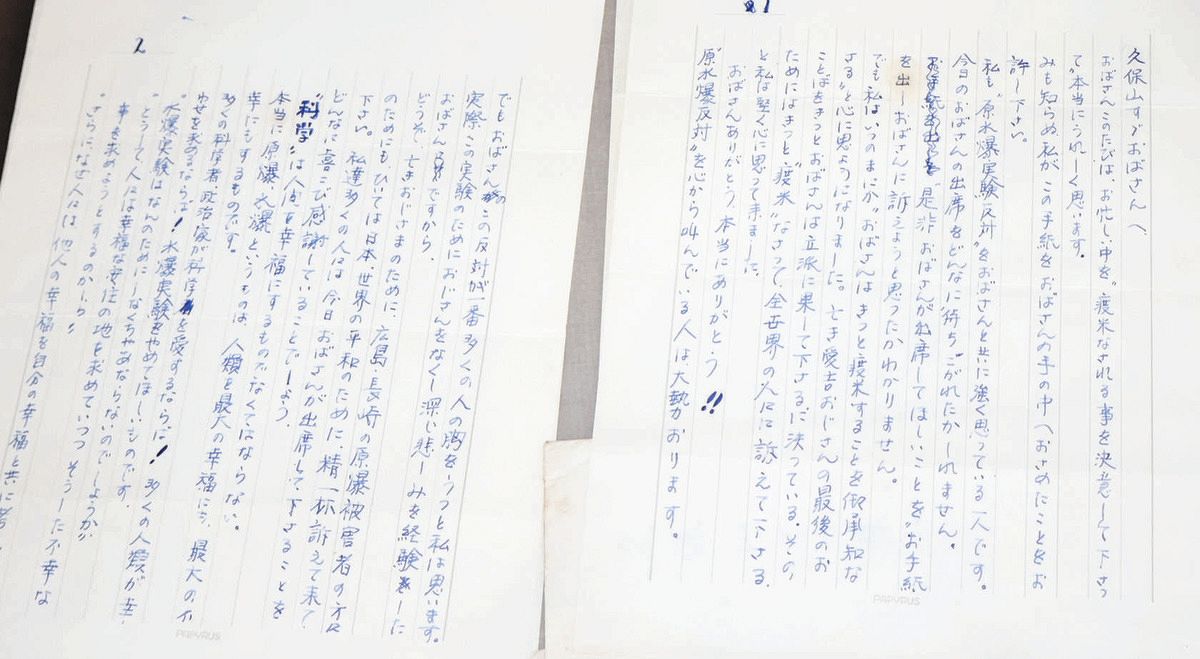 1
久保山すゞおばさんへ、
おばさんこのたびは、お忙しい中を〝渡米なされる事を決意して下さっ
て〝本当にうれしく思います。
みも知らぬ私がこの手紙をおばさんの手の中へおさめにことをお
許し下さい。
私も〝原水爆実験反対〟をおばさんと共に強く思っている一人です。
今日のおばさんの出席をどんなに待ちこがれたかしれません。
是非おばさんが出席してほしいことを〝お手紙
を出しおばさんに訴えようと思ったかわかりません。
でも私はいつのまにか〝おばさんはきっと渡米することを御承知な
さる〟と心に思ようになりました。亡き愛吉おじさんの最後のお
ことばをきっとおばさんは立派に果して下さるに決っている。その
ためにはきっと〝渡米〟なさって、全世界の人々に訴えて下さる
と私は堅く心に思って来ました。
おばさんありがとう、本当にありがとう!!
〝原水爆反対〟を心から叫んでいる人は、大勢おります。
PAPYRUS
2
でもおばさんのこの反対が一番多くの人の胸をうつと私は思います。
実際、この実験のためにおじさんをなくし深い悲しみを経験した
おばさんですから、
どうぞ、亡きおじさまのために、広島、長崎の原爆被害者の方々
のためにもひいては日本、世界の平和のために、精一杯訴えて来て
下さい。私達多くの人々は、今日おばさんが出席して下さることを
どんなに喜こび感謝していることでしょう。
〝科学〟は人間を幸福にするものでなくてはならない。
本当に原爆、水爆というものは、人類を最大の幸福にも、最大の不
幸にもするものです。
多くの科学者、政治家が科学を愛するならば!多くの人類が幸
わせを求めるならば!水爆実験をやめてほしいものです。
〝水爆実験はなんのためにしなくちゃあならないのでしょうか〟
〝どうして、人々は幸福な安住の地を求めていつつそうした不幸な
事を求めようとするのかしら〟
〝さらになぜ人々は他人の幸福を自分の幸福と共に考
PAPYRUS